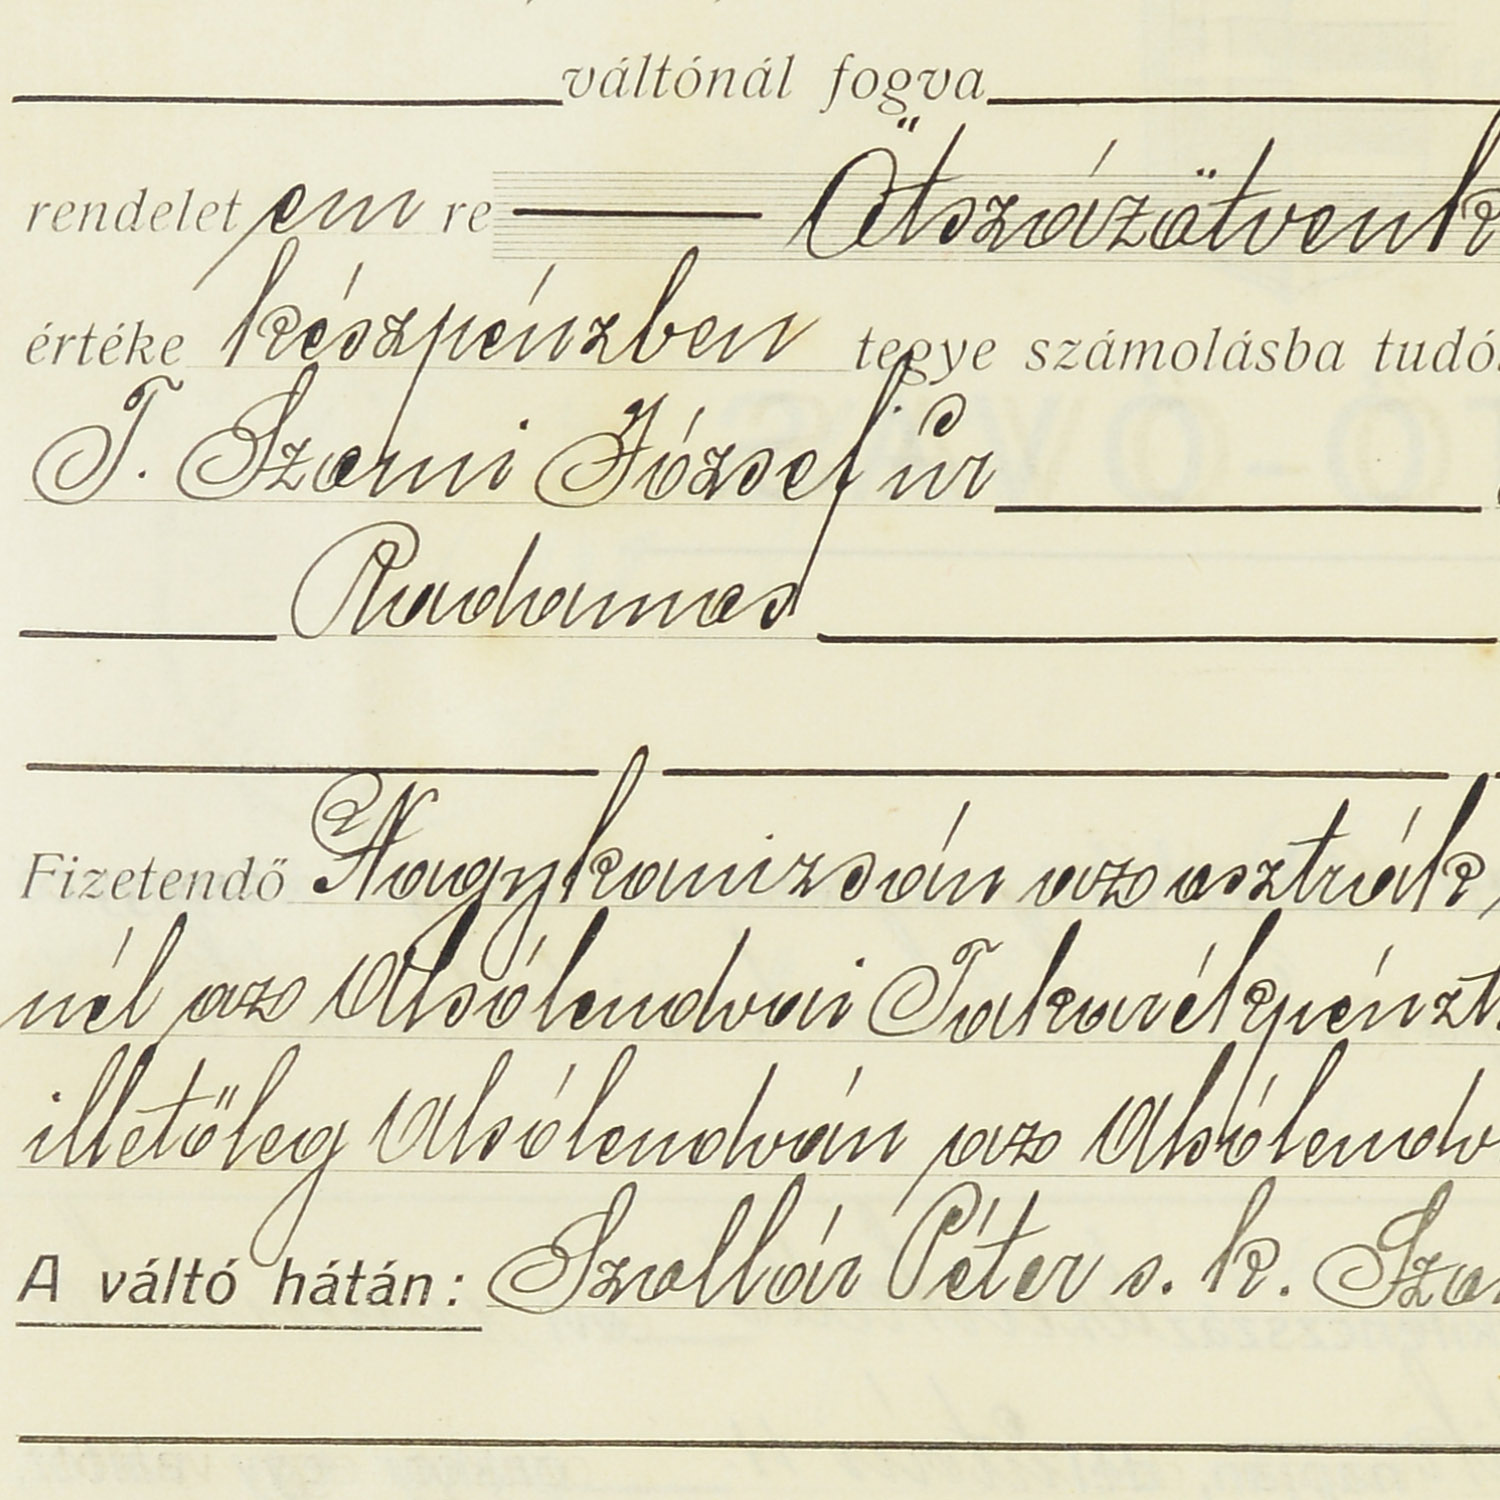 váltónál fogva
rendelet em re Ötszázötvenk
értéke készpénzben tegye számolásba tudó
T. Szemi József úr
Radamos
Fizetendő Nagykanizsán az osztrák
nél az Alsólendvai Takarékpénzt
illetőleg Alsólendván az Alsólendv
A váltó hátán: Szollár Péter s. k. Sze